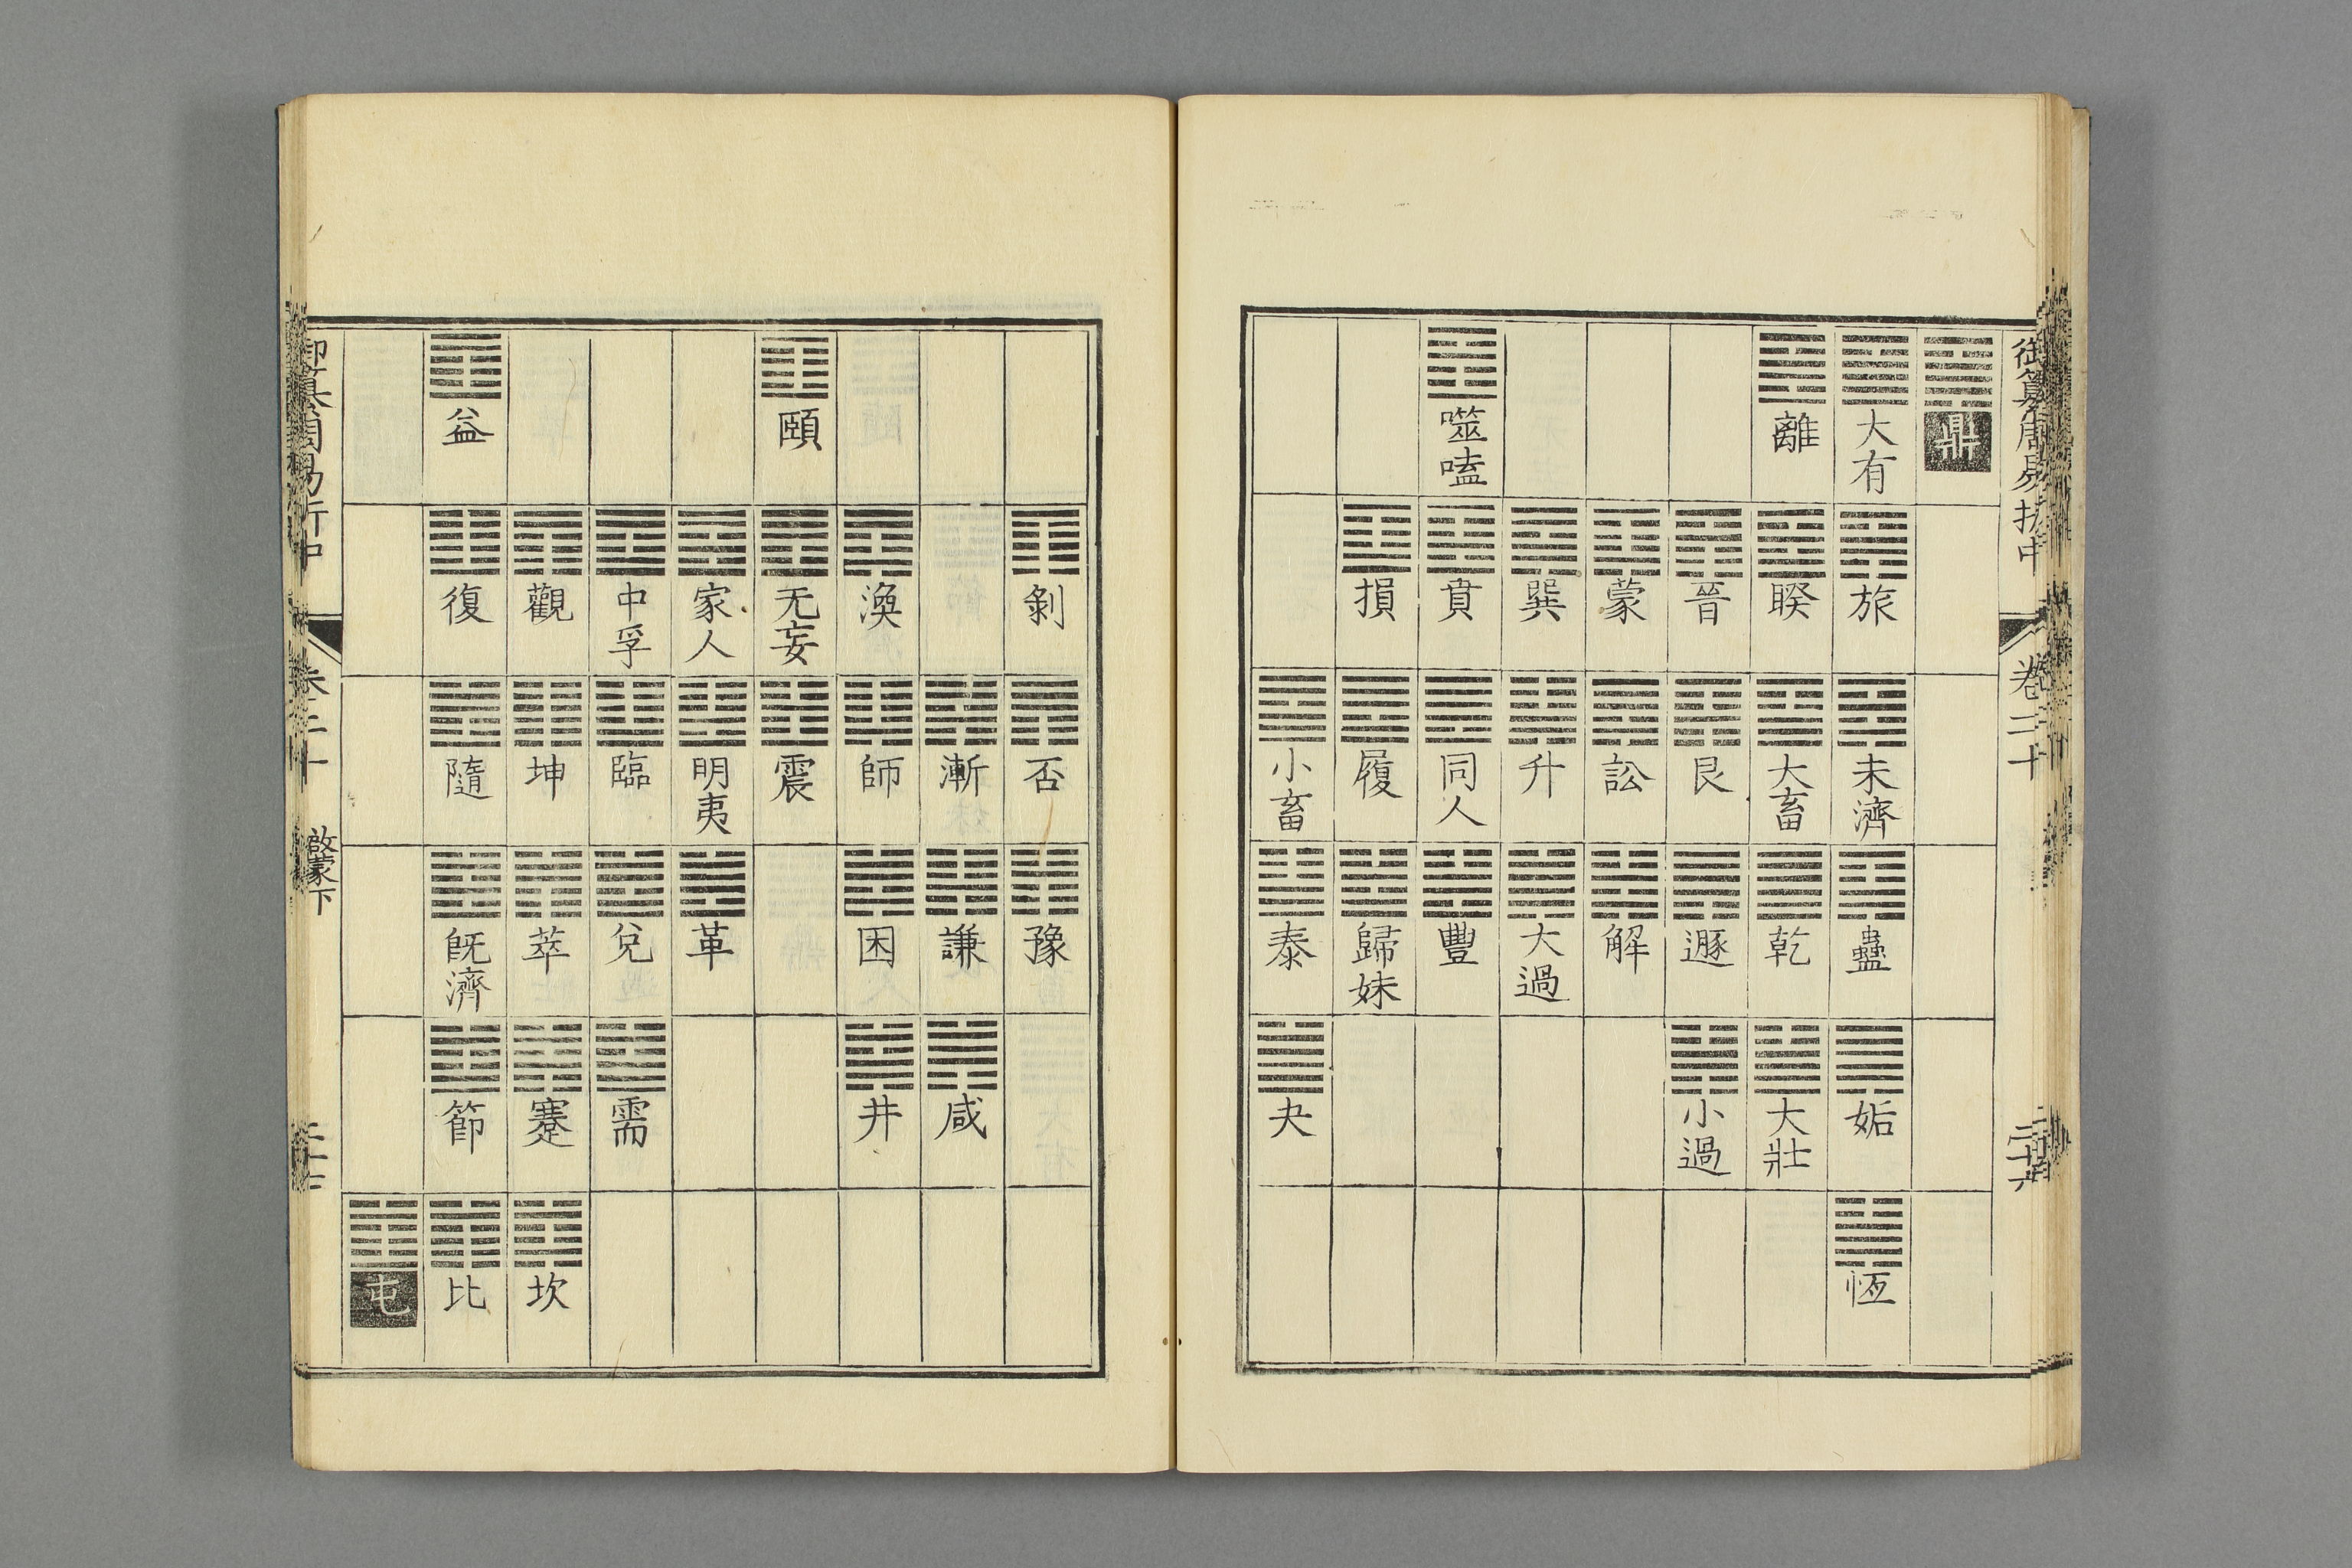 御纂周易折中
卷二十
鼎
大有
旅
未濟
蠱
姤
恆
離
睽
大畜
乾
大壯
晉
艮
遯
小過
蒙
訟
解
巽
升
大過
噬嗑
賁
同人
豐
損
履
歸妹
小畜
泰
夬
剝
否
豫
漸
謙
咸
渙
師
困
井
頤
无妄
震
家人
明夷
革
中孚
臨
兌
需
觀
坤
萃
蹇
坎
益
復
隨
旣濟
節
比
屯
御纂周易折中
卷二十
啟蒙下